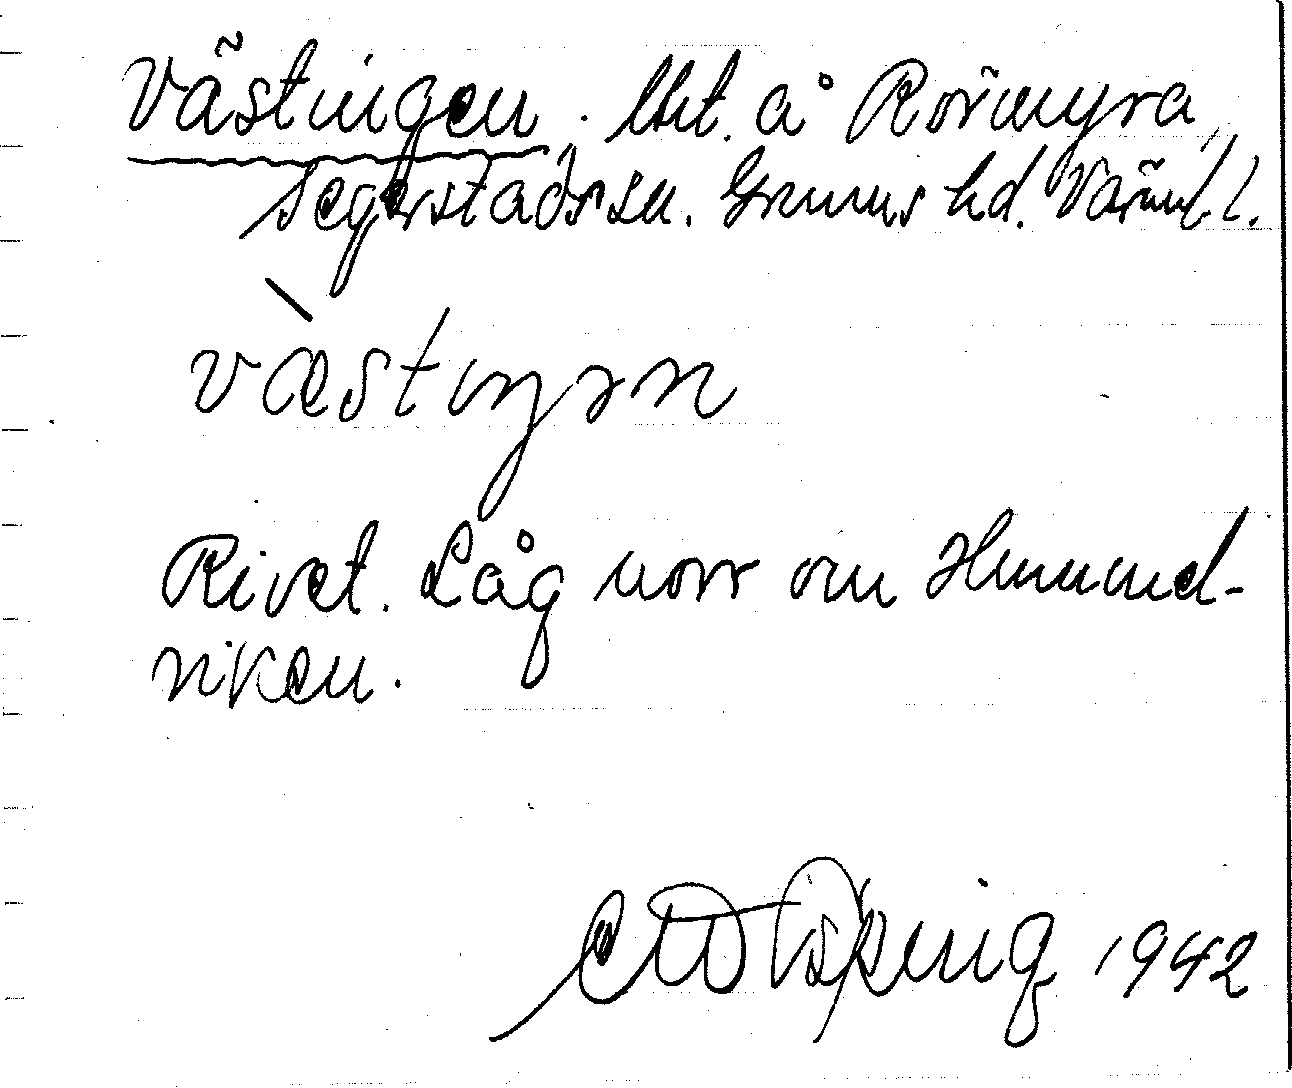 Västingen. lht. å Rörmyra,
Segerstads sn. Grums hd. Värml. l.
væstiŋən
Rivet. Låg norr om Hummel-
viken.
1942